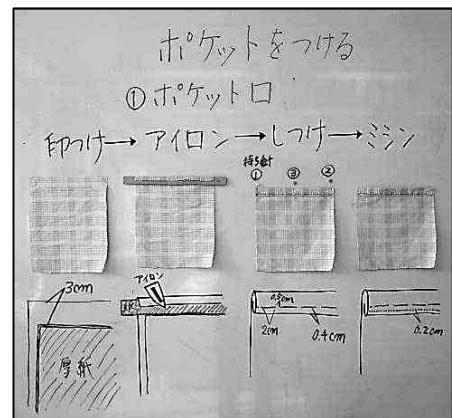 ポケットをつける
①ポケット口
印つけ→アイロン→しつけ→ミシン
待ち針
① ③ ②
3cm
厚紙
アイロン
0.5cm
2cm
0.4cm
0.2cm